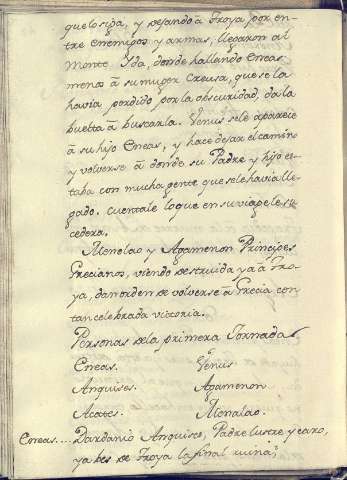 que lo siga, y pasando à Troya por en-
tre enemigos y armas, llegaron al
Monte Yda, donde hallando Eneas
menos à su muger Creusa, que se la
havia perdido por la obscuridad, da la
buelta à buscarla. Venus se le aparece
à su hijo Eneas, y hace dejar el camino
y volverse à donde su Padre y hijo es-
taba con mucha gente que se le havia lle-
gado. Cuentale lo que en su viage le su-
cedera.
Menelao y Agamenon Principes
Grecianos, viendo destruida ya à Tro-
ya, dan orden de volverse à Grecia con
tan celebrada victoria.
Personas de la primera Jornada
Eneas. Venus
Anquises. Agamenon.
Acates. Menalao.
Eneas.... Dardanio Anquises, Padre lustre y caro,
ya bes de Troya la final ruina,